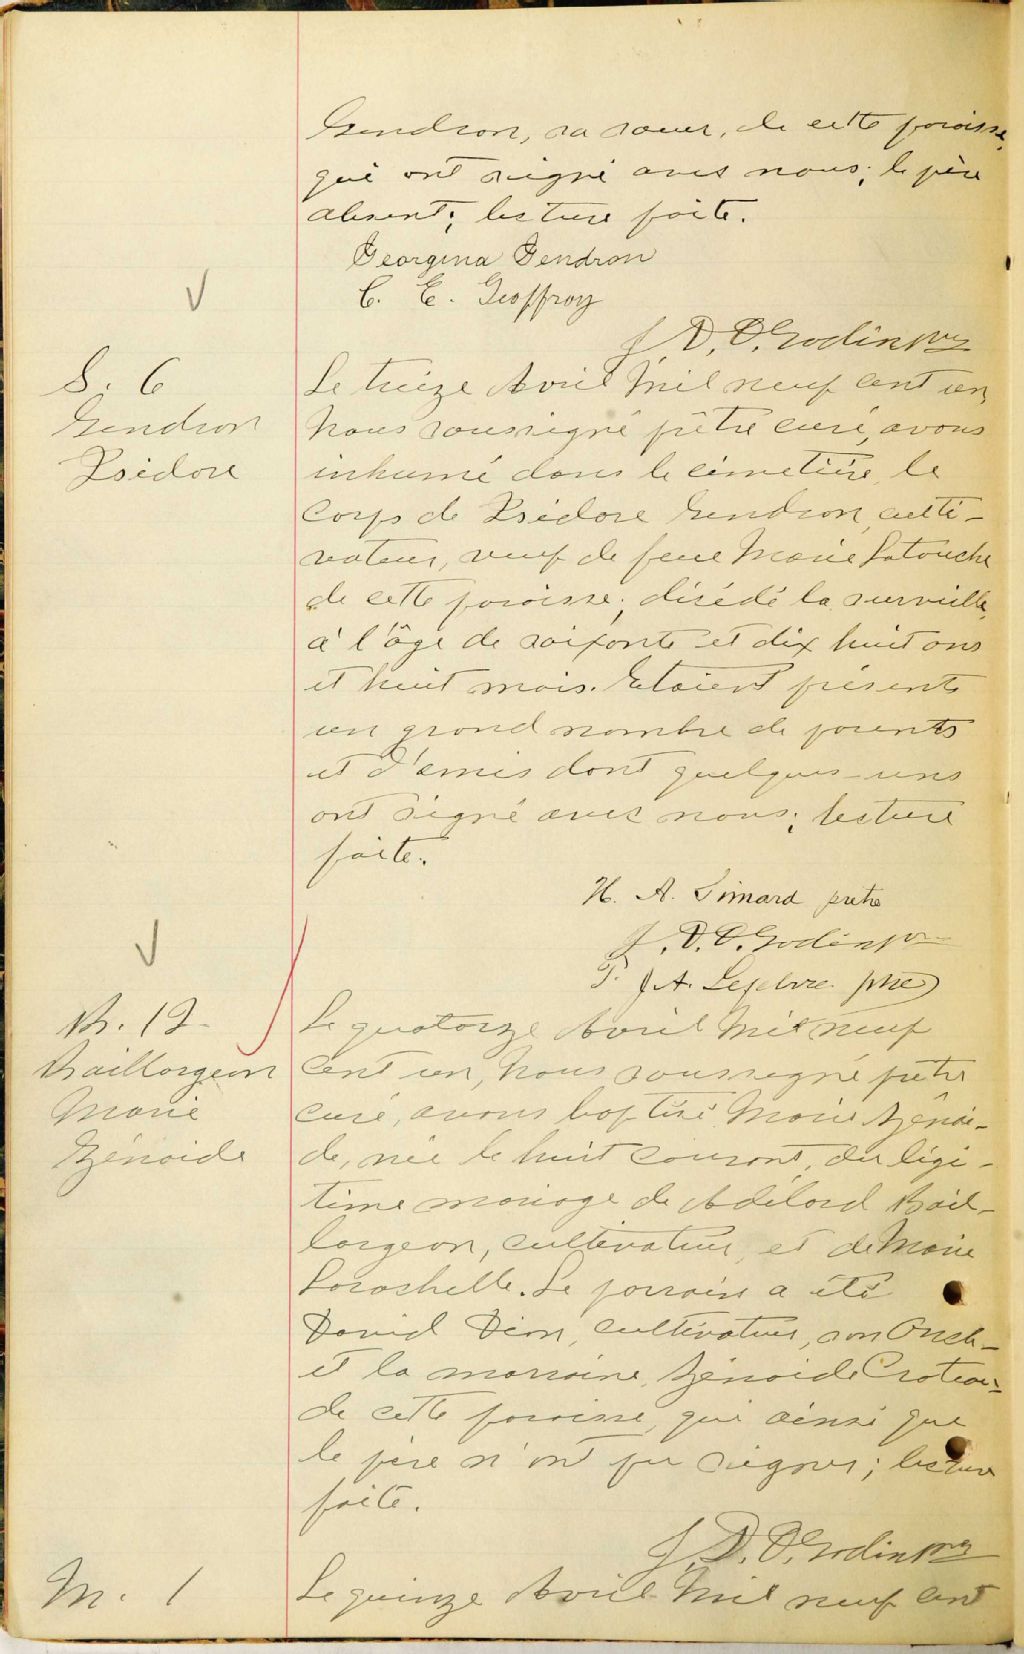 Gendron, sa soeur, de cette paroisse,
qui ont signé avec nous; le père
absent; lecture faite.
Georgina Gendron
C. E. Geoffroy
J. D. O. Godin ptre
S. 6
Gendron
Isidore
Le treize Avril Mil neuf cent un,
Nous soussigné prêtre curé, avons
inhumé dans le cimetière, le
corps de Isidore Gendron, culti-
vateur, veuf de feue Marie Latouche
de cette paroisse; décédé la surveille,
à l'âge de soixante et dix huit ans
et huit mois. Etaient présents
un grand nombre de parents
et d'amis dont quelques-uns
ont signé avec nous; lecture
faite.
H. A. Simard prêtre
J. D. O. Godin ptre
P. J. A. Lefebvre ptre
B. 12
Baillargeon
Marie
Zénaide
Le quatorze Avril Mil neuf
cent un, Nous soussigné prêtre
curé, avons baptisé Marie Zénai-
de, née le huit courant, du légi-
time mariage de Adélard Bail-
largeon, cultivateur, et de Marie
Larochelle. Le parrain a été
David Dion, cultivateur, son Oncle
et la marraine, Zénaide Croteau
de cette paroisse, qui ainsi que
le père n'ont pu signer; lecture
faite.
J. D. O. Godin ptre
M. 1
Le quinze Avril Mil neuf cent